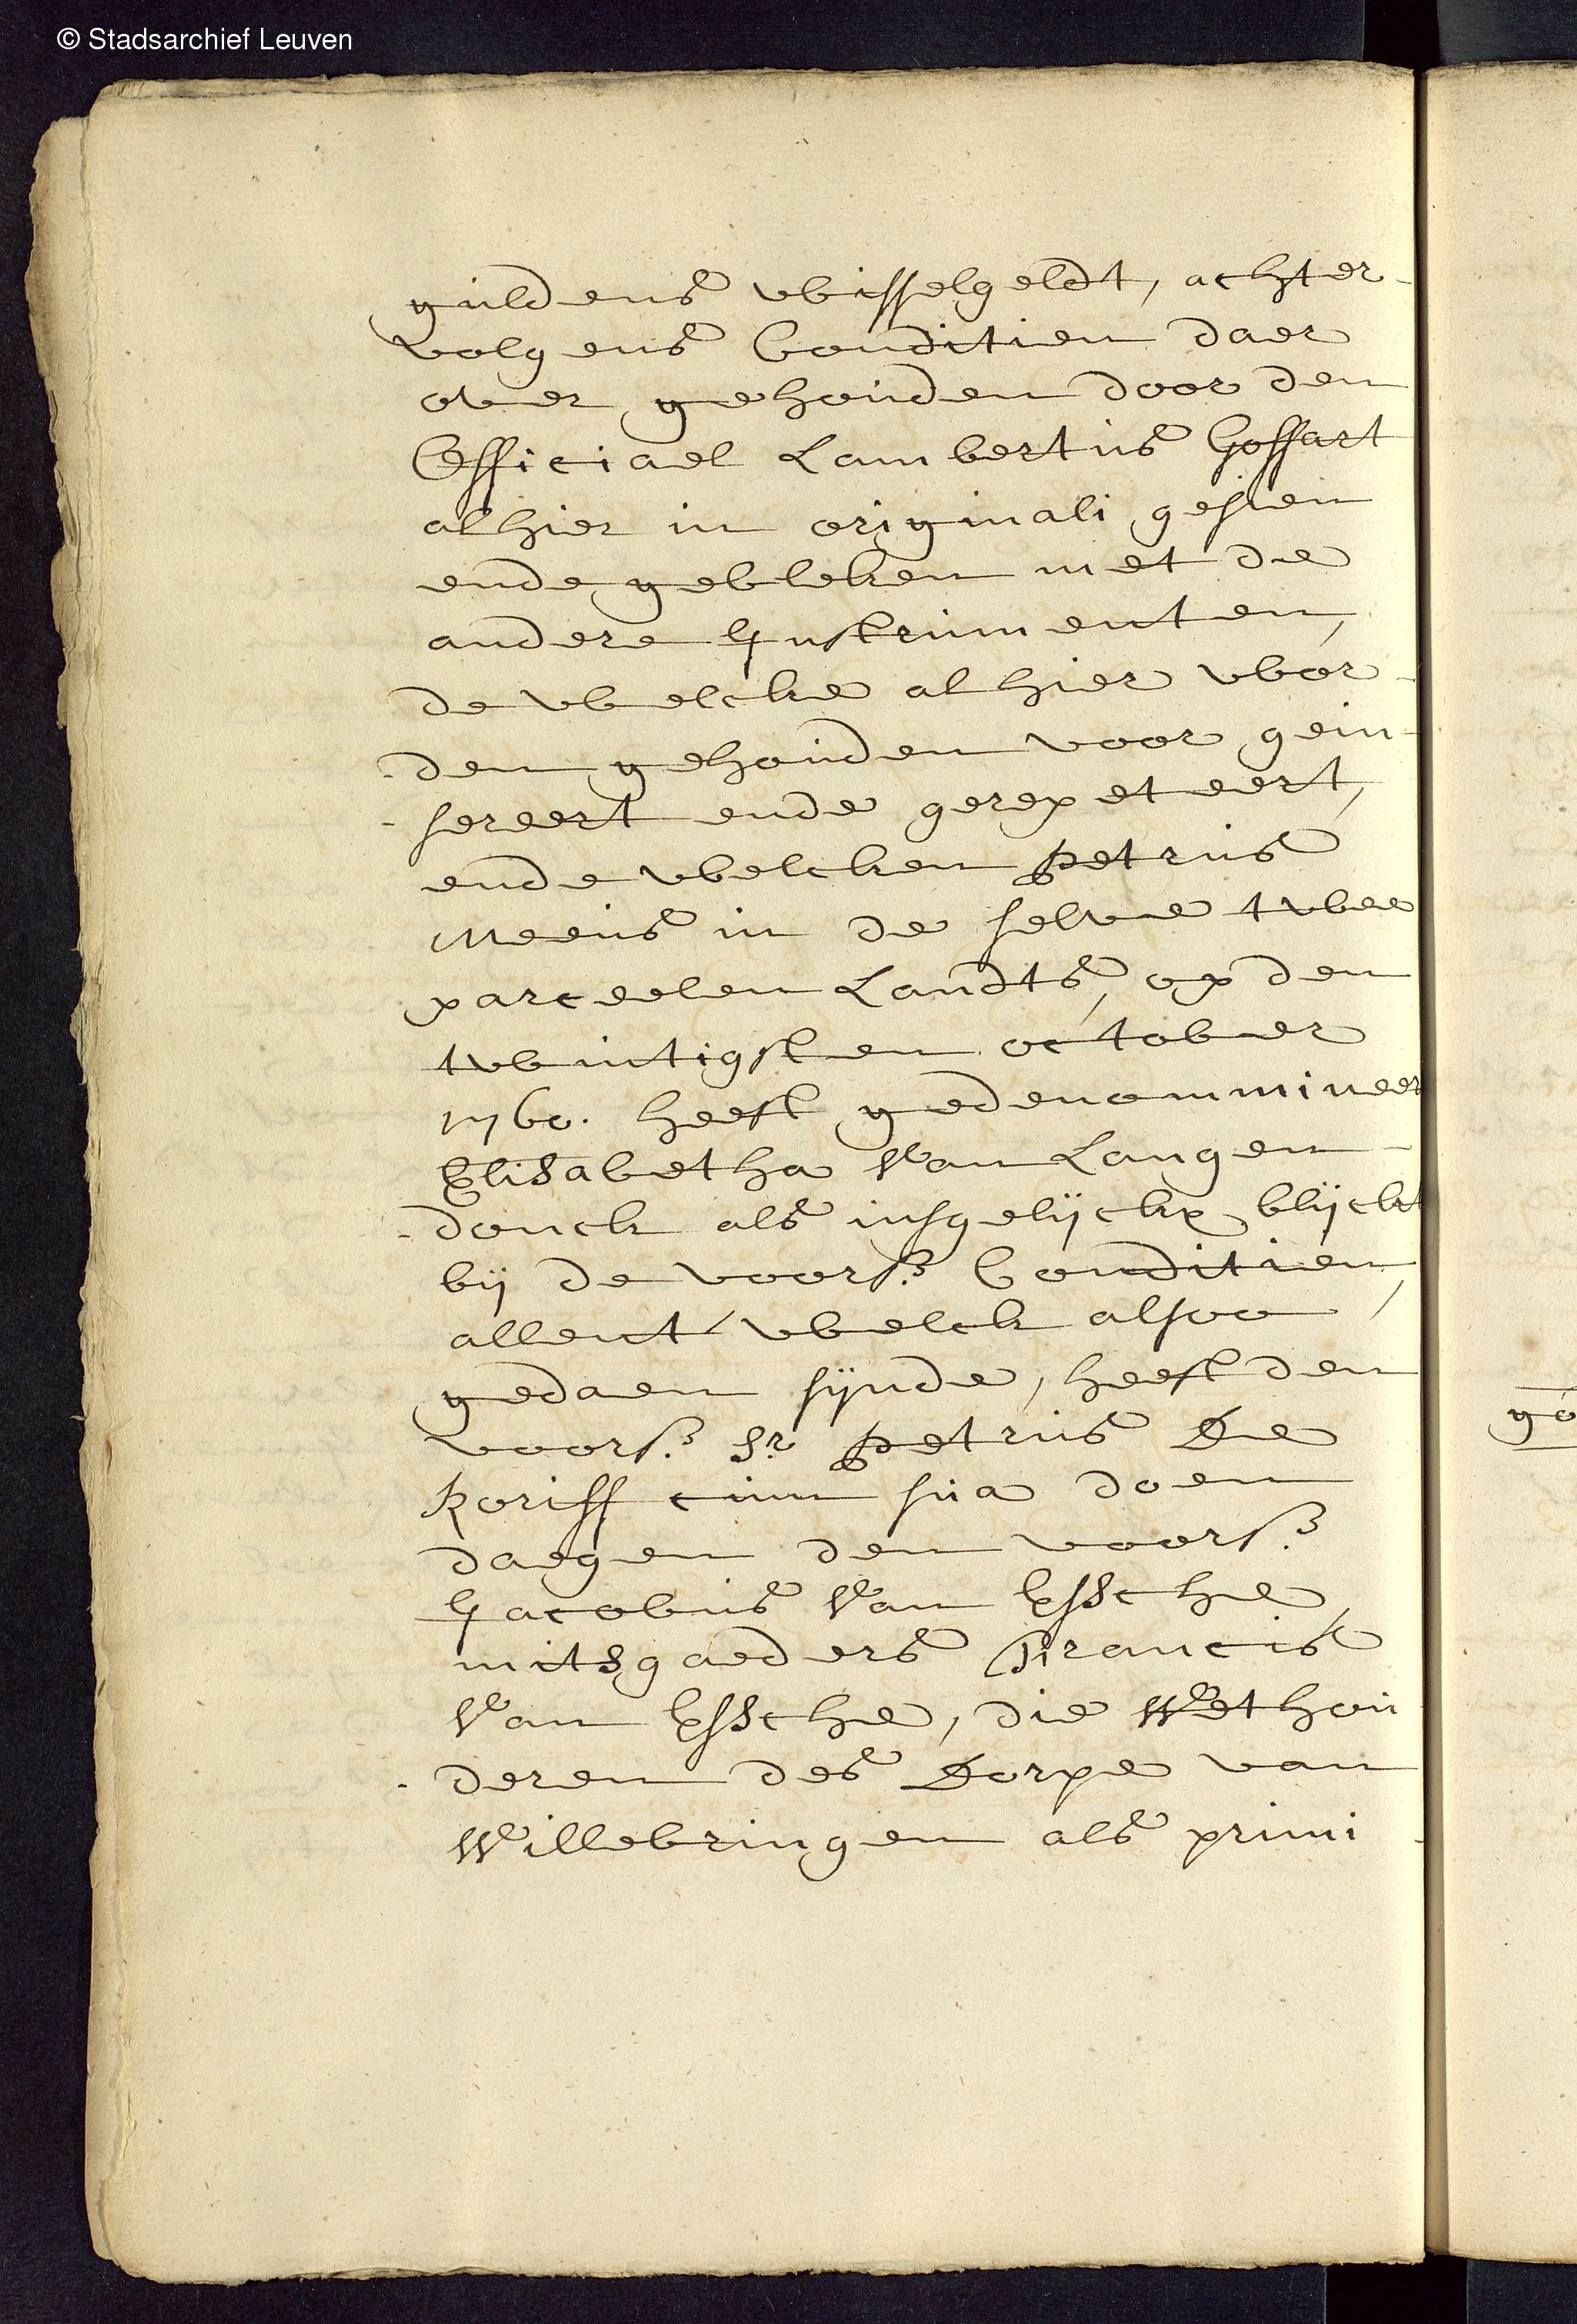 © Stadsarchief Leuven
guldens wisselgeldt, achter-
volgens Conditien daer
over gehouden door den
Officiael Lambertus Goffart
alhier in originali gesien
ende gebleken met de
andere Instrumenten,
de welcke alhier wor-
-den gehouden voor gein-
-sereert ende gerepeteert,
ende welcken Petrus
Meeus in de selve twee
parceelen Landts, op den
twintigsten october
1760. heeft gedenommineert
Elisabetha Van Langen-
-donck als insgelijckx blijckt
bij de voors. Conditien,
allent welck alsoo
gedaen sijnde, heeft den
voors. Sr. Petrus De
Roriff cum sua doen
daegen den voors.
Jacobus Van Essche,
mitsgaeders Francis
Van Essche, die Wethou-
-deren des Dorpe van
Willebringen als primi-
go